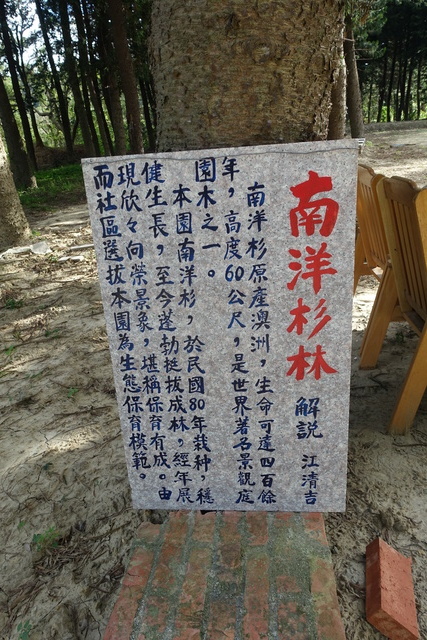 南洋杉林 解說 江清吉
南洋杉原產澳洲，生命可達四百餘
年，高度60公尺，是世界著名景觀庭
園木之一。
本園南洋杉，於民國80年栽種，穩
健生長，至今蓬勃挺拔成林，經年展
現欣々向榮景象，堪稱保育有成。由
而社區選拔本園為生態保育模範。